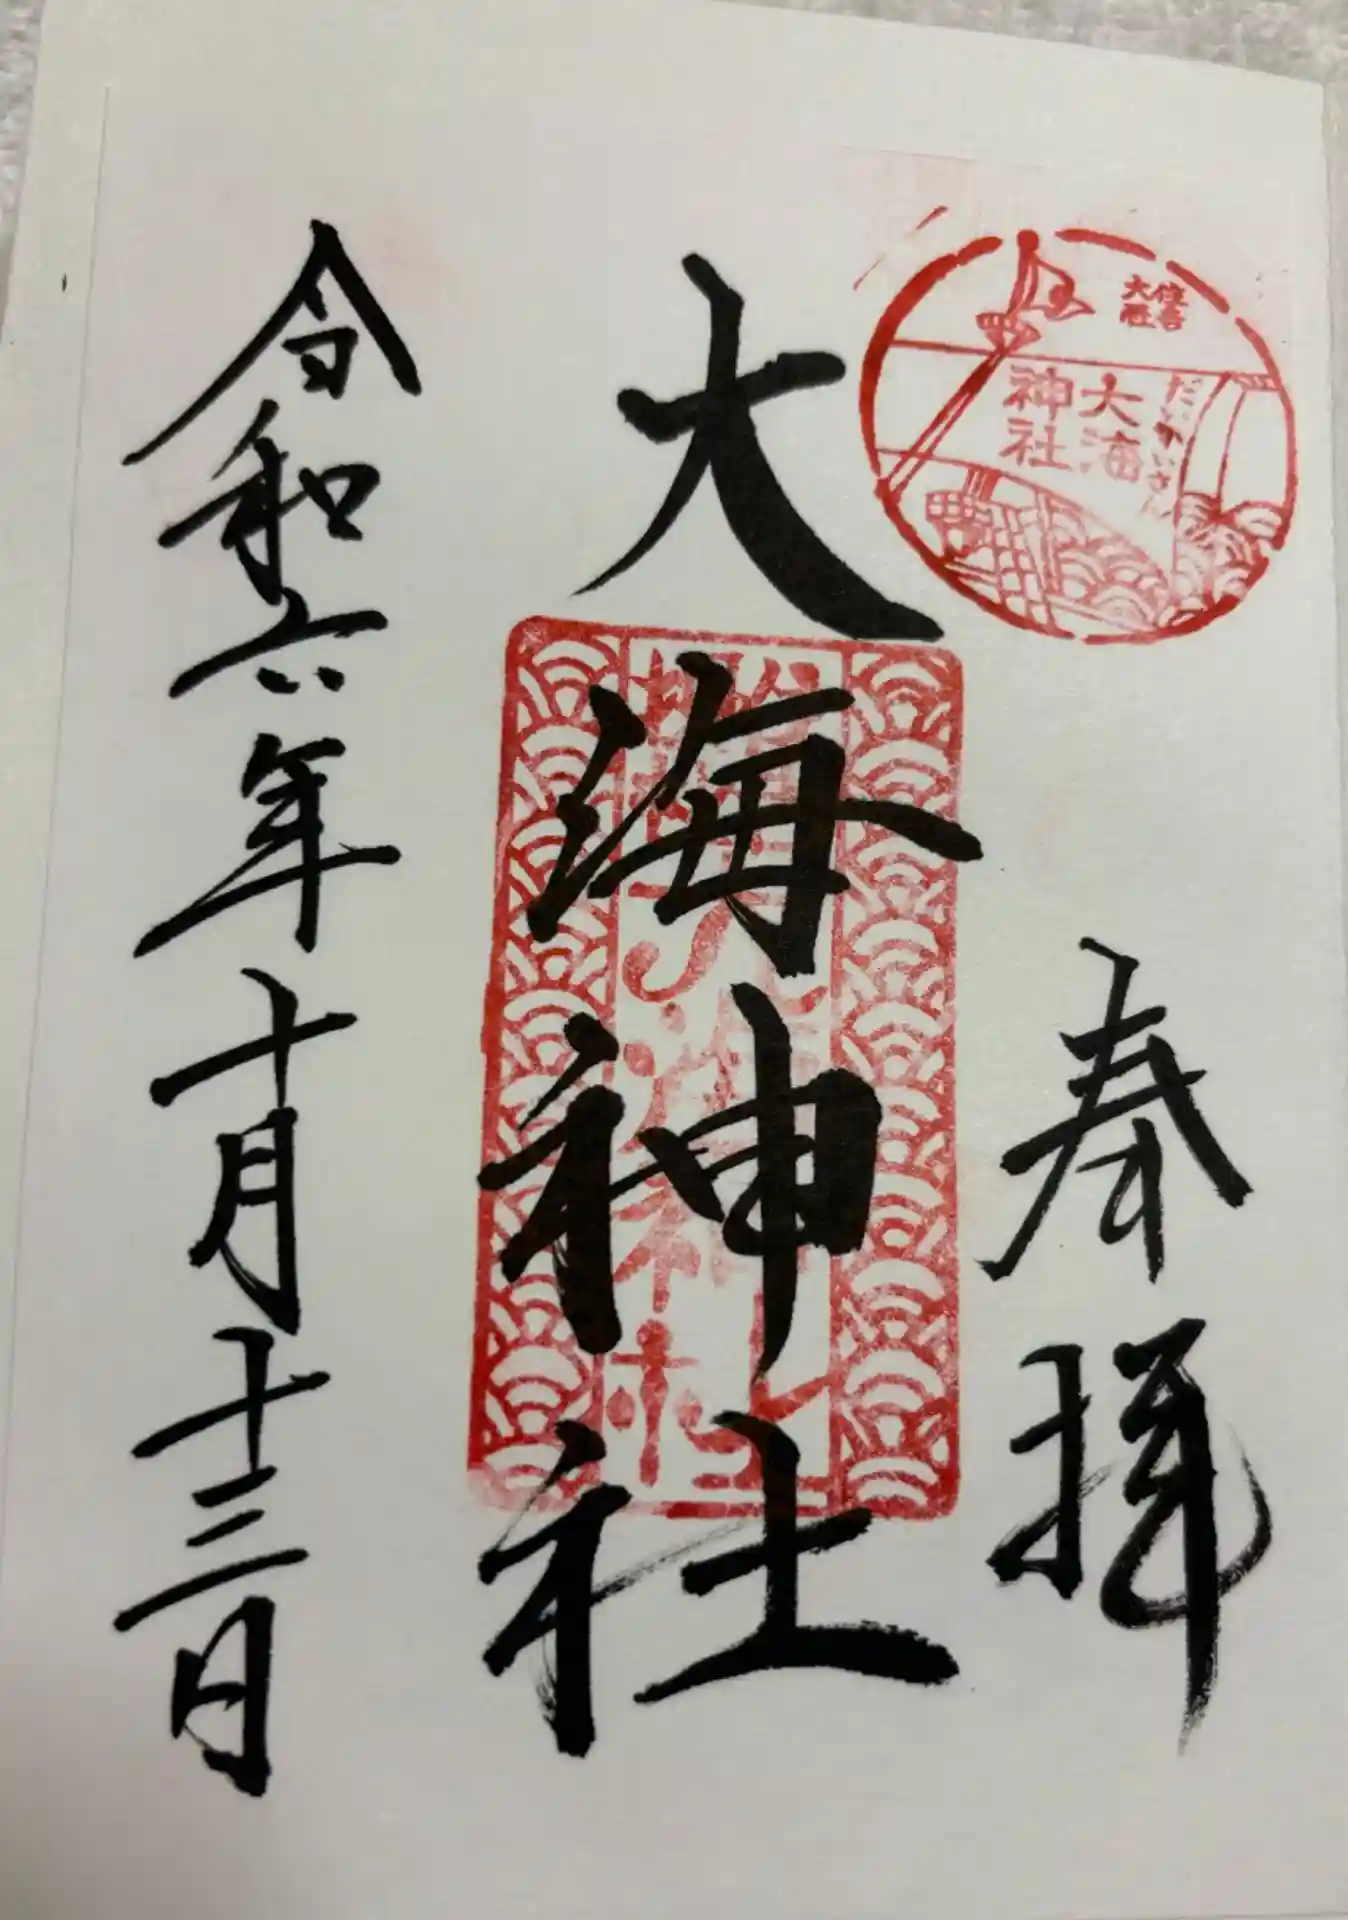 住吉
大社
だいかいさん
大海
神社
奉拝
大海神社
令和六年十月十三日